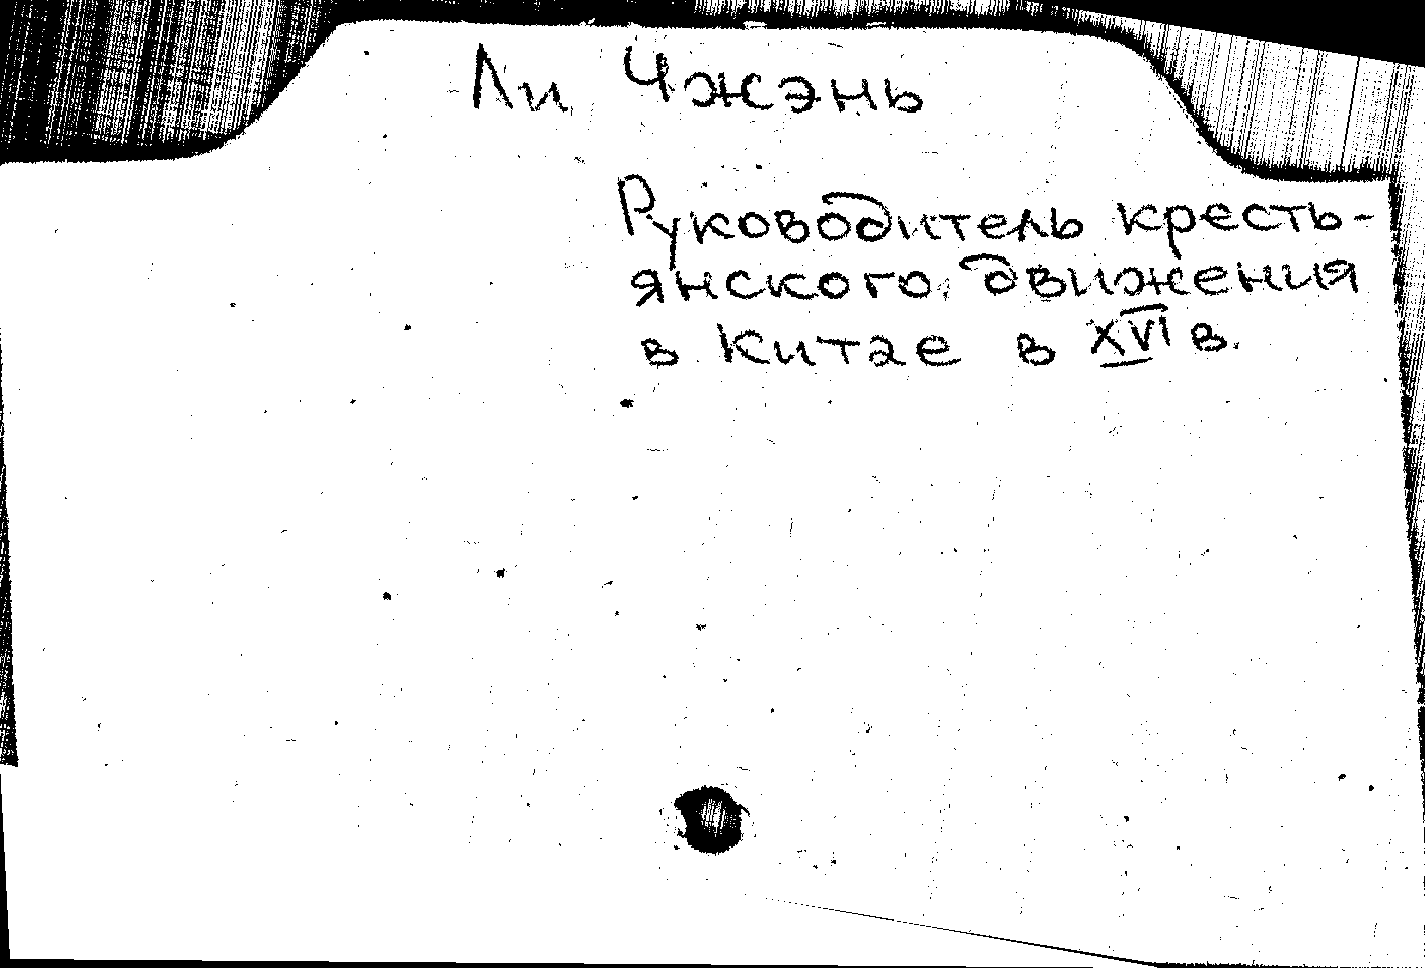 Ли Чжэнь
Руководитель кресть-
янского движения
в Китае в XVI в.